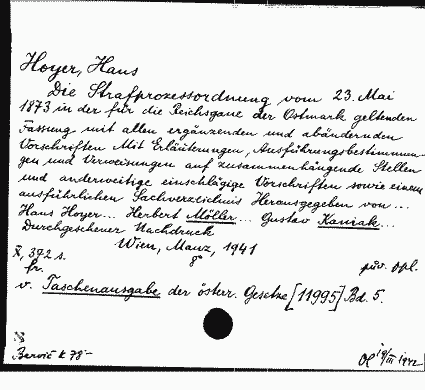 Hoyer, Hans
Die Strafprozessordnung vom 23. Mai
1873 in der für die Reichsgaue der Ostmark geltenden
Fassung mit allen ergänzenden und abändernden
Vorschriften Mit Erläuterungen, Ausführungsbestimmun-
gen und Verweisungen auf zusammenhängende Stellen
und anderweitige einschlägige Vorschriften sowie einem
ausführlichen Sachverzeichnis Herausgegeben von ...
Hans Hoyer... Herbert Möller... Gustav Kaniak...
Durchgesehener Nachdruck
Wien, Manz, 1941
X, 392 s. 8°
fr. pův. opl.
v. Taschenausgabe der österr. Gesetze [11995] Bd. 5.
K 78-